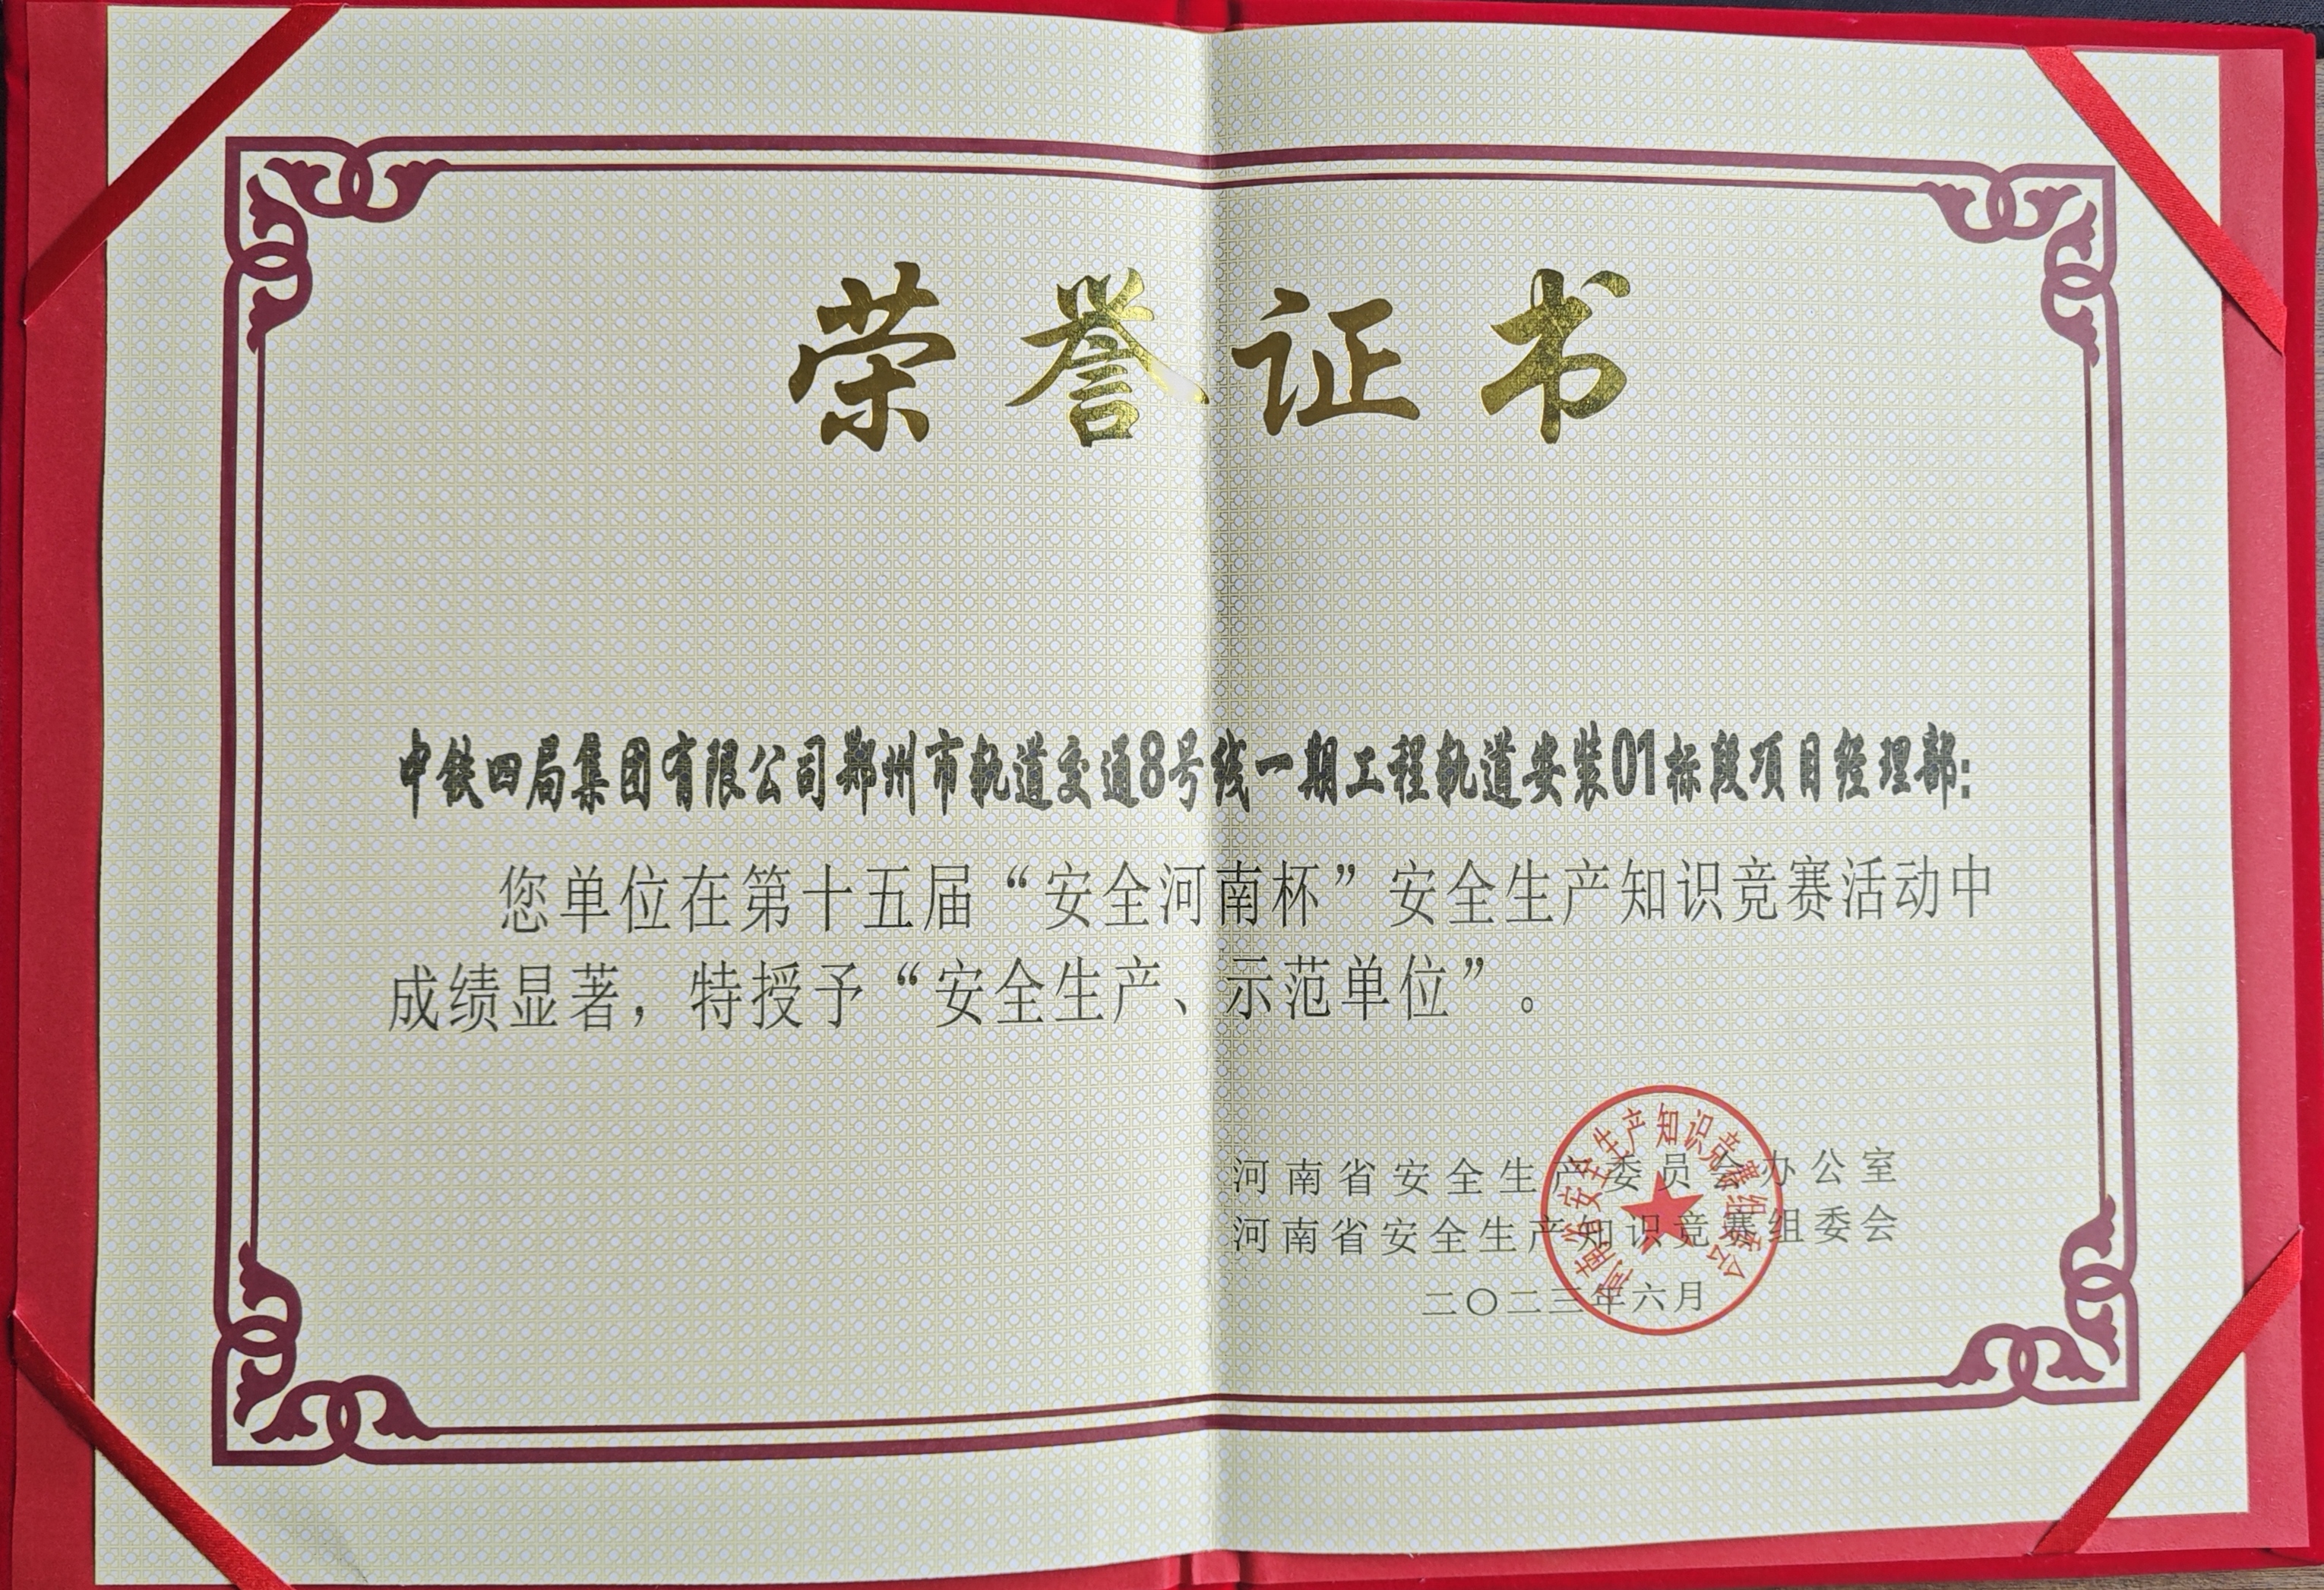 荣誉证书
中铁四局集团有限公司郑州市轨道交通8号线一期工程轨道安装01标段项目经理部:
您单位在第十五届“安全河南杯”安全生产知识竞赛活动中
成绩显著，特授予“安全生产、示范单位”。
河南省安全生产委员会办公室
河南省安全生产知识竞赛组委会
二〇二三年六月
河南省安全生产知识竞赛组委会